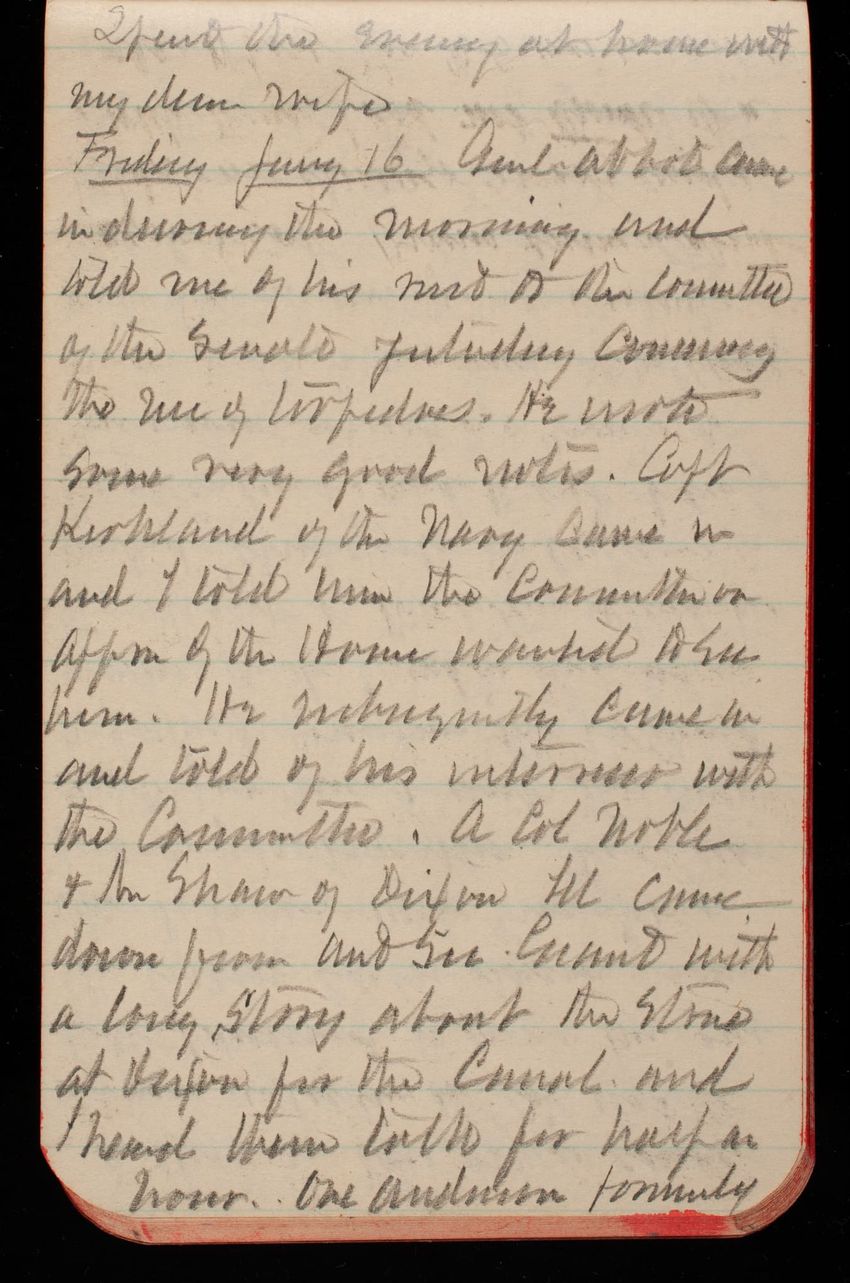 Spent the evening at home with
my dear wife
Friday Jany 16 Genl Abbot came
in during the morning and
told me of his visit to the Committee
of the Senate yesterday concerning
the use of torpedoes. He wrote
some very good notes. Capt
Kirkland of the Navy came in
and I told him the Committee on
Appn of the House wanted to see
him. He subsequently came in
and told of his interview with
the Committee. A Col Noble
& Mr Shaw of Dixon Ill came
down from Asst Sec Grant with
a long story about the stone
at Dixon for the Canal and
I heard them talk for half an
hour. One Anderson formerly